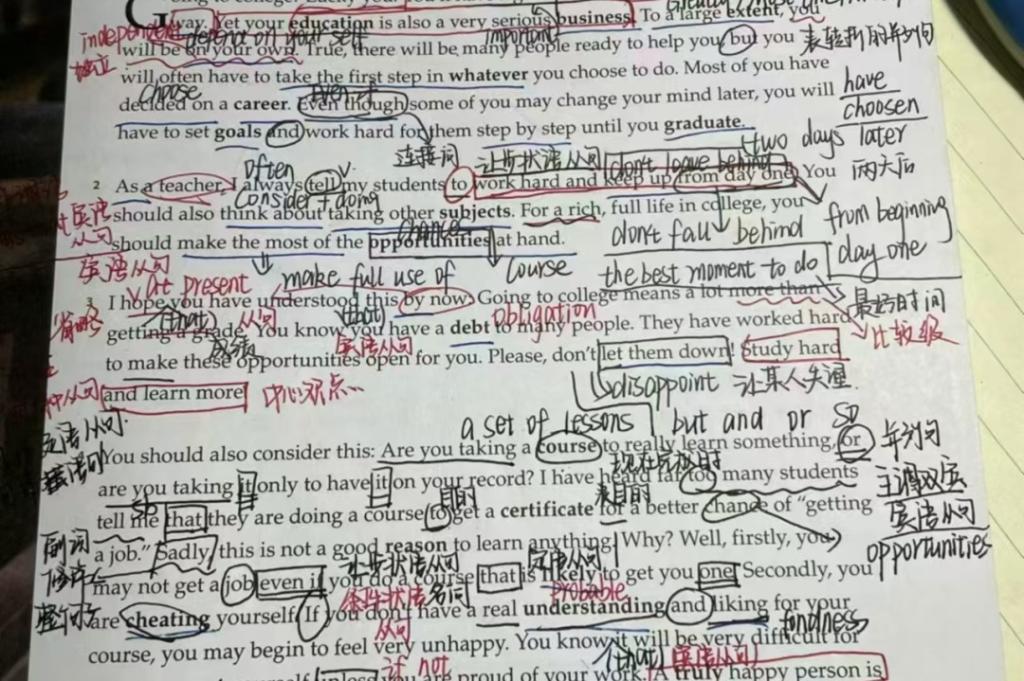 going to college. Lucky you
way. Yet your education is also a very serious business. To a large extent, you
independent depend on yourself important
will be on your own. True, there will be many people ready to help you, but you 表转折的并列句
独立
will often have to take the first step in whatever you choose to do. Most of you have
choose even if have
decided on a career. Even though some of you may change your mind later, you will choosen
have to set goals and work hard for them step by step until you graduate.
two days later
连接词 让步状语从句 don't leave behind
often 两天后
2 As a teacher, I always tell my students to work hard and keep up from day one. You
consider + doing
should also think about taking other subjects. For a rich, full life in college, you
chance don't fall behind from beginning
should make the most of the opportunities at hand.
day one
宾语从句 make full use of course the best moment to do
at present
3 I hope you have understood this by now. Going to college means a lot more than 最好时间
省略 (that) 从句 (that) obligation
getting a grade. You know you have a debt to many people. They have worked hard 比较级
成绩 宾语从句
to make these opportunities open for you. Please, don't let them down! Study hard
disappoint 让某人失望
and learn more 中心观点
a set of lessons but and or so
You should also consider this: Are you taking a course to really learn something, or 并列句
are you taking it only to have it on your record? I have heard far too many students
目的 表目的
tell me that they are doing a course to get a certificate for a better chance of "getting
宾语从句
副词 a job." Sadly, this is not a good reason to learn anything! Why? Well, firstly, you
opportunities
让步状语从句 定语从句
may not get a job even if you do a course that is likely to get you one. Secondly, you
条件状语 名词 probable
are cheating yourself. If you don't have a real understanding and liking for your
从句 fondness
course, you may begin to feel very unhappy. You know it will be very difficult for
if not (that) 宾语从句
unless you are proud of your work. A truly happy person is